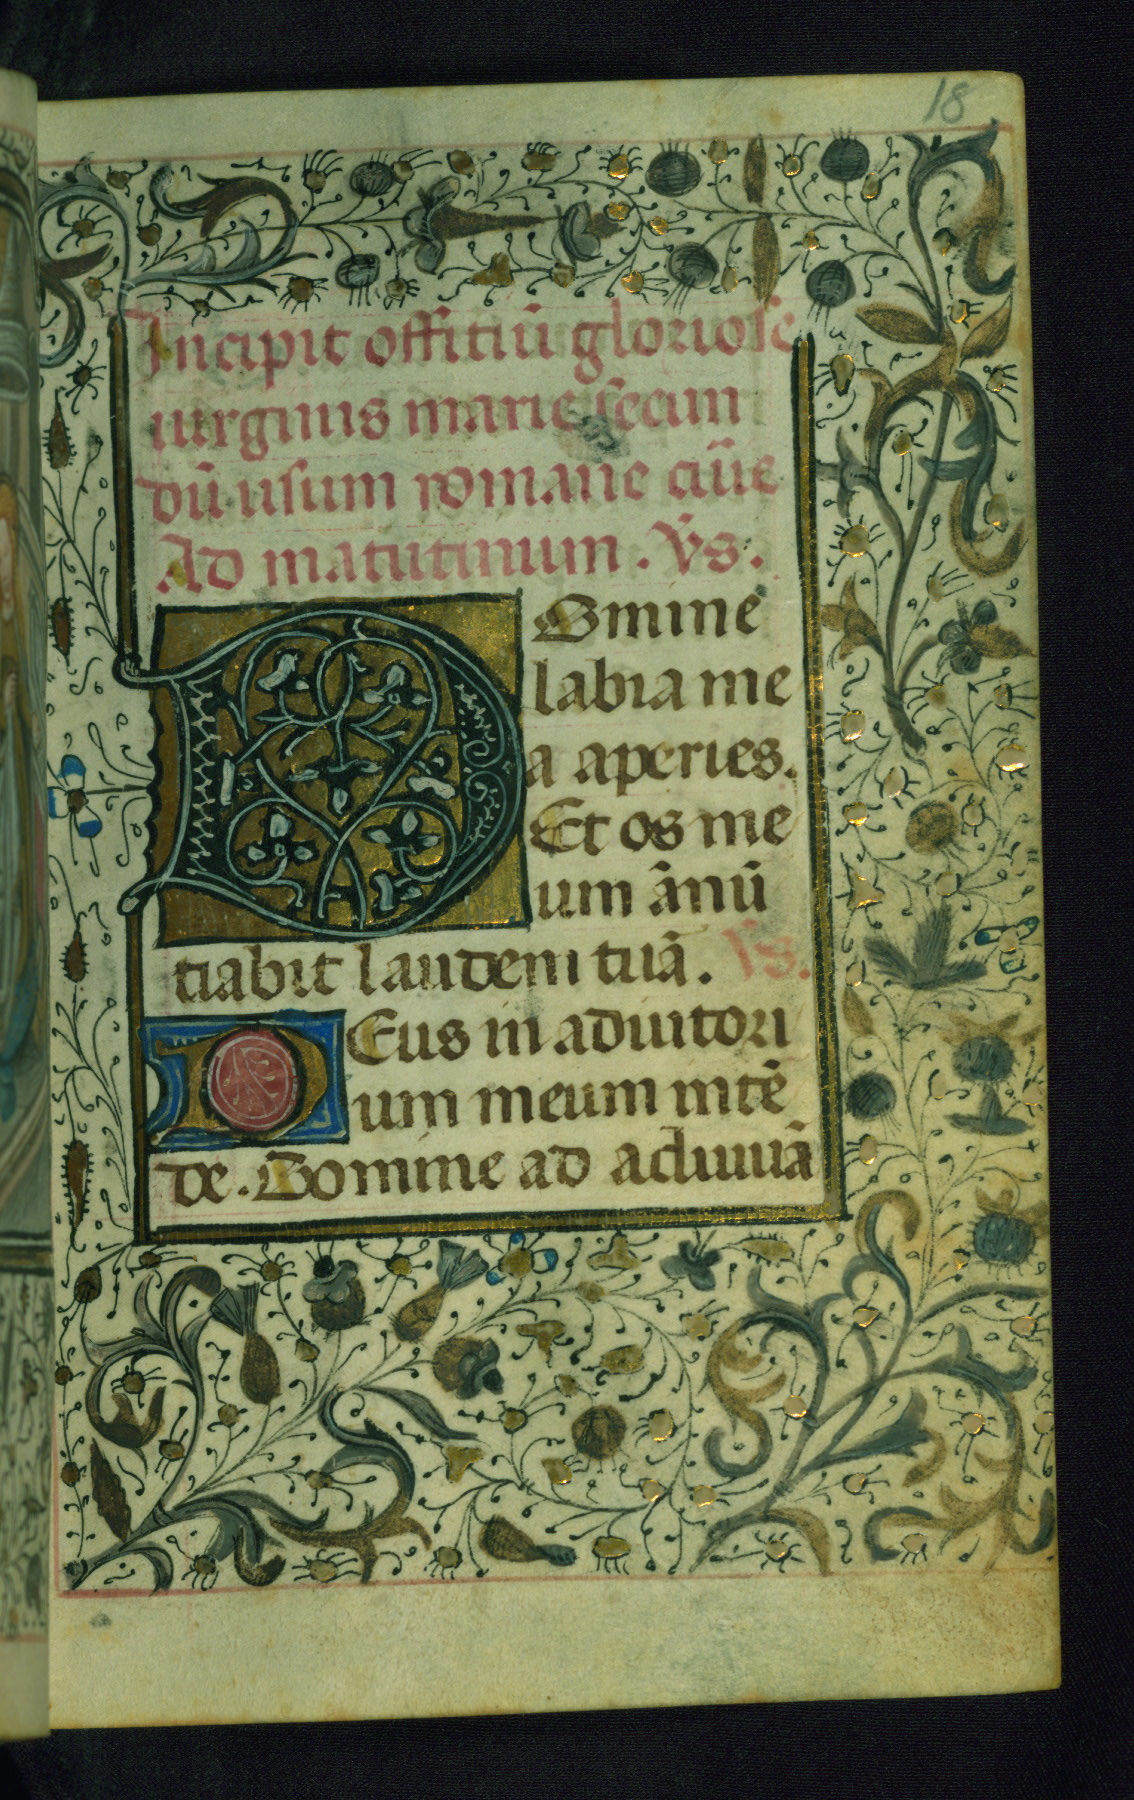 18
Incipit offitiū gloriose
uirginis marie secun
dū usum romane cūe
Ad matutinum. Vs.
Domine
labia me
a aperies.
Et os me
um ānū
tiabit laudem tuā. Vs.
Deus in adiutori
um meum intē
de. Domine ad adiuuā